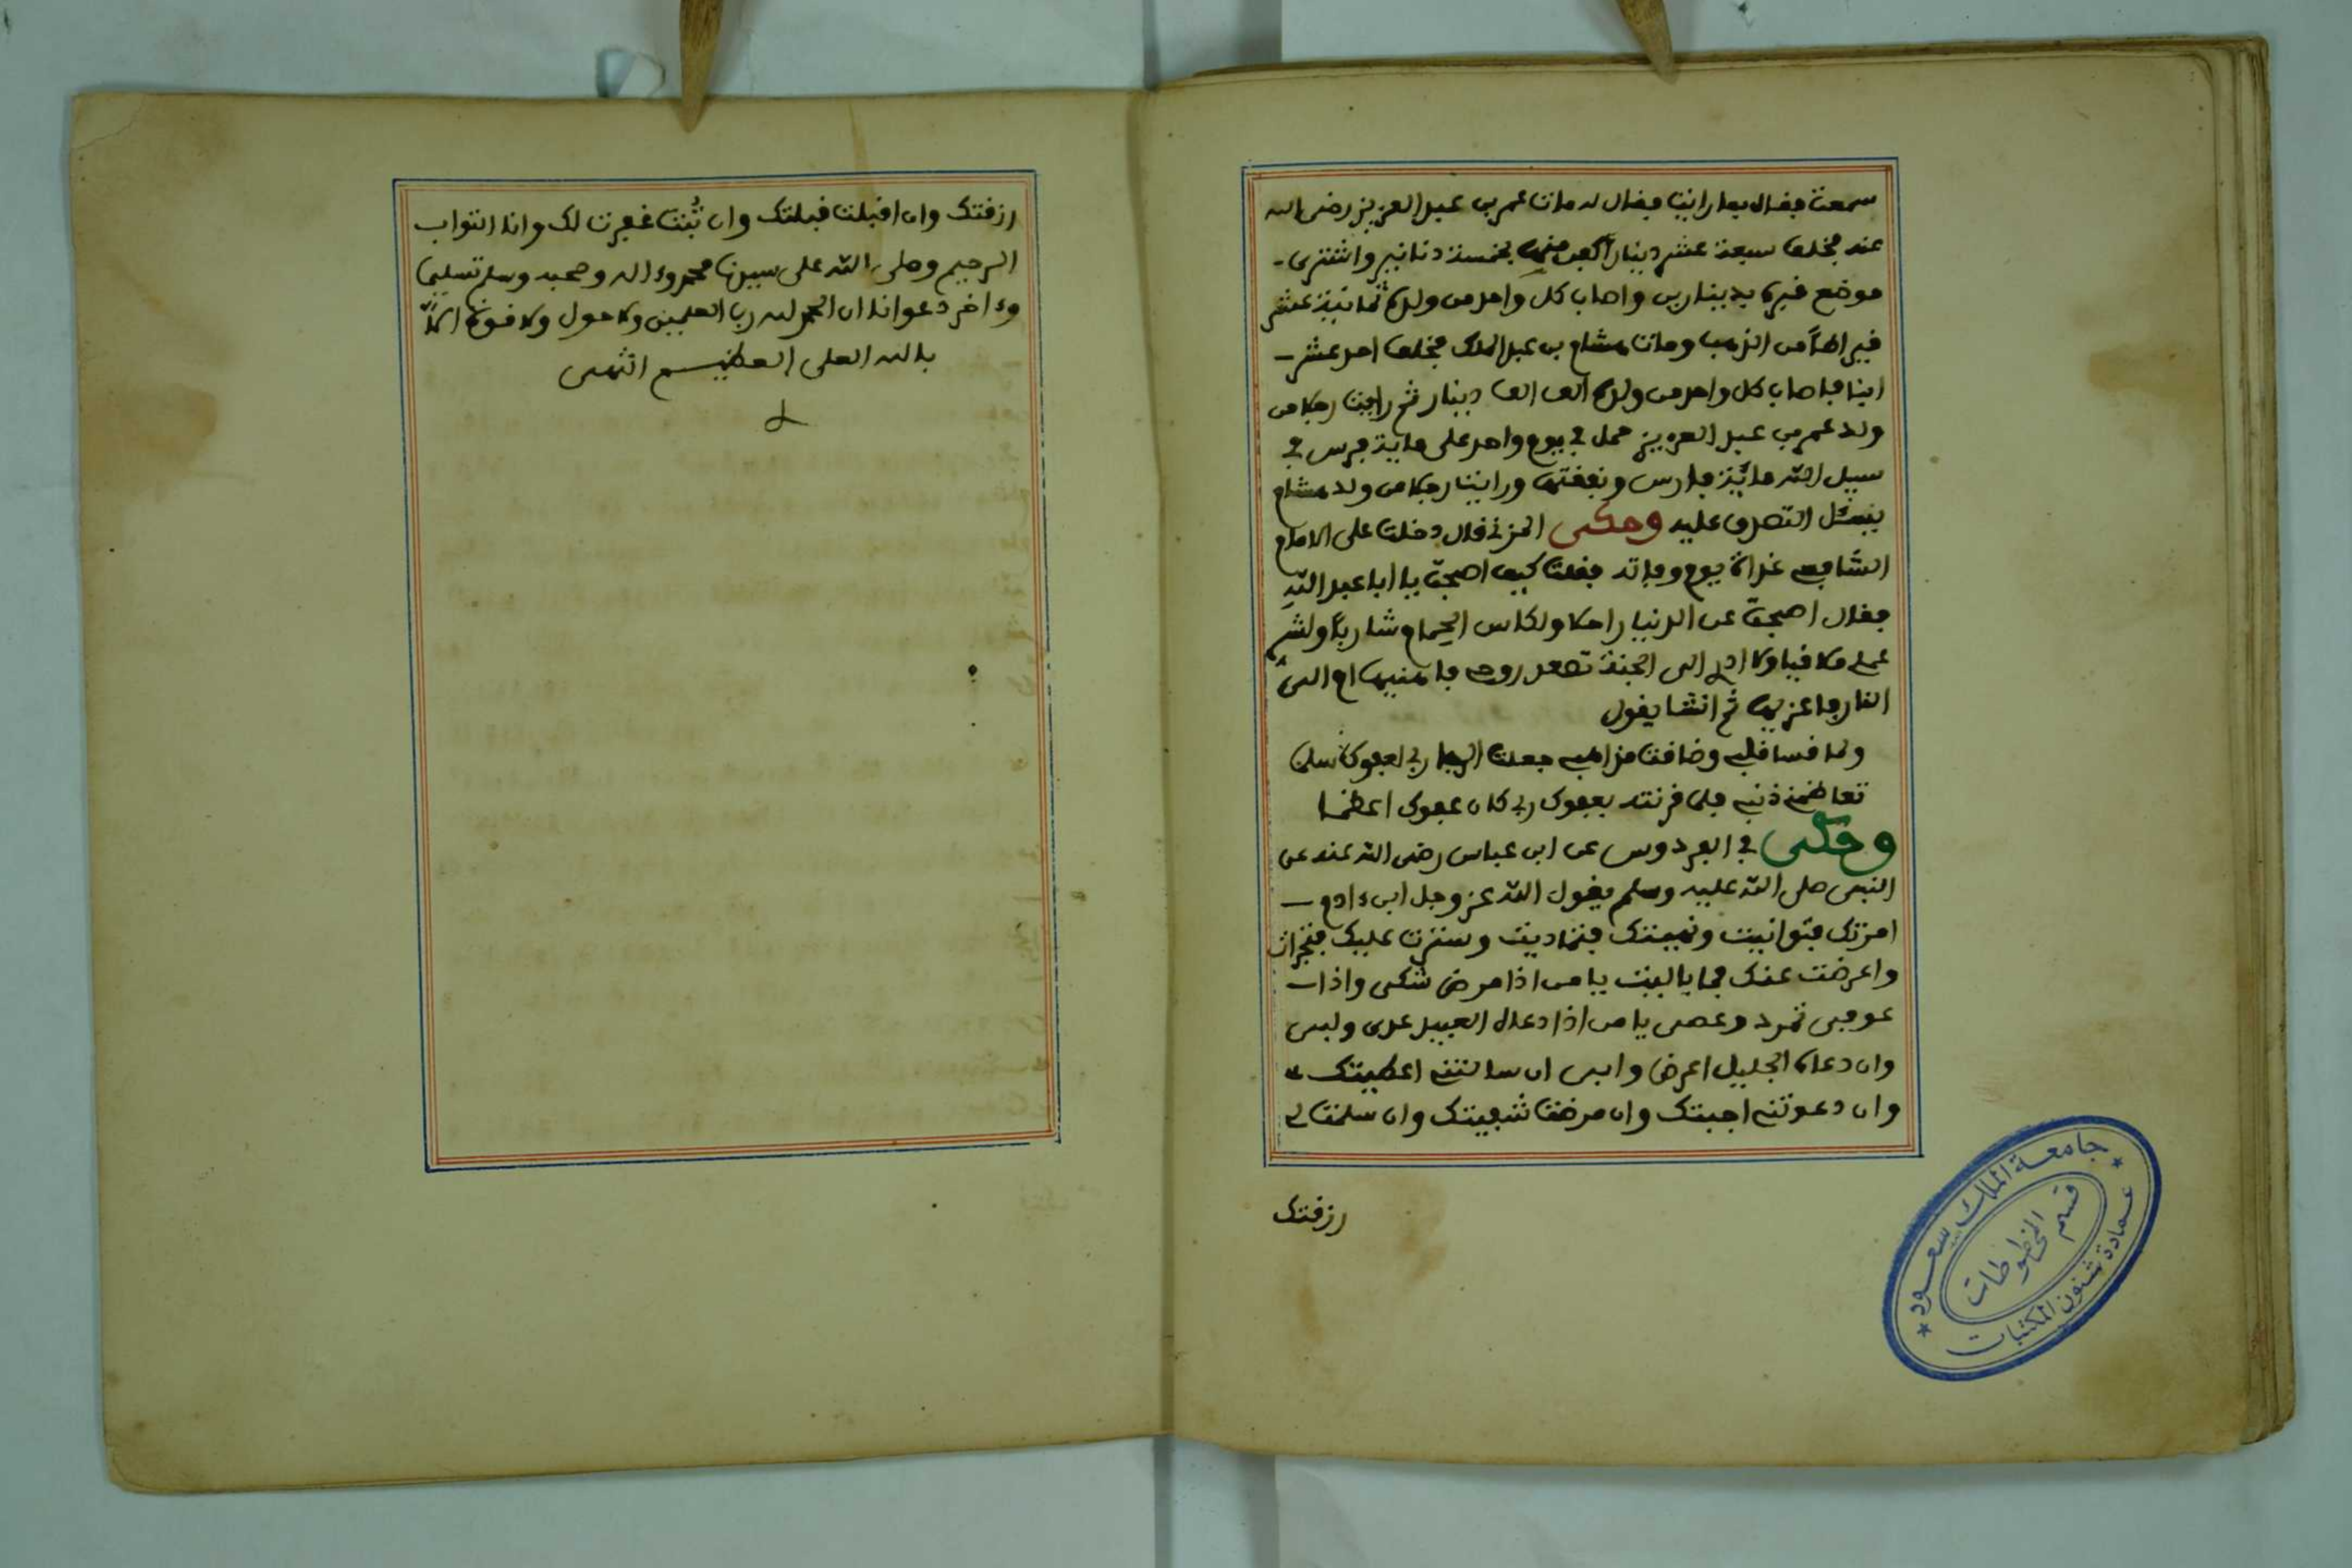 سمعت فقال بما رايت فقال له مات عمر بن عبد العزيز رضى الله
عنه فخلف سبعة عشر دينارا كفن منها بخمسة دنانير واشترى
موضع قبره بدينارين واصاب كل واحد من ولده ثمانية عشر
قيراطا من الذهب ومات هشام بن عبد الملك فخلف احد عشر
ابنا فاصاب كل واحد من ولده الف الف دينار ثم رايت رجلا من
ولد عمر بن عبد العزيز حمل في يوم واحد على ماية فرس في
سبيل الله ماية فارس ونفقتها ورايت رجلا من ولد هشام
يتصدق عليه وحكى المزني قال دخلت على الامام
الشافعي غداة يوم وفاته فقلت كيف اصبحت يا ابا عبد الله
فقال اصبحت عن الدنيا راحلا ولكاس الحمام شاربا ولشر
عملي ملاقيا ولا ادري الى الجنة تصعد روحي فاهنيها ام الى
النار فاعزيها ثم انشا يقول
ولما قسا قلبي وضاقت مذاهبي جعلت الرجا ربي لعفوك سلما
تعاظمني ذنبي فلما قرنته بعفوك ربي كان عفوك اعظما
وحكى في الفردوس عن ابن عباس رضى الله عنه عن
النبي صلى الله عليه وسلم يقول الله عز وجل ابن ءادم
امرتك فتوانيت ونهيتك فتماديت وسترت عليك فتجرات
واعرضت عنك فما باليت يا من اذا مرض شكى واذا
عوفي تمرد وعصى يا من اذا دعاه العبيد عدى ولبى
وان دعاه الجليل اعرض وابى ان سالتني اعطيتك
وان دعوتني اجبتك وان مرضت شفيتك وان سلمت لي
رزقتك
رزقتك وان اقبلت قبلتك وان تُبت غفرت لك وانا التواب
الرحيم وصلى الله على سيدنا محمد وءاله وصحبه وسلم تسليما
وءاخر دعوانا ان الحمد لله رب العلمين ولا حول ولا قوة الا
بالله العلي العظيم انتهى
جامعة الملك سعود
قسم المخطوطات
عمادة شئون المكتبات